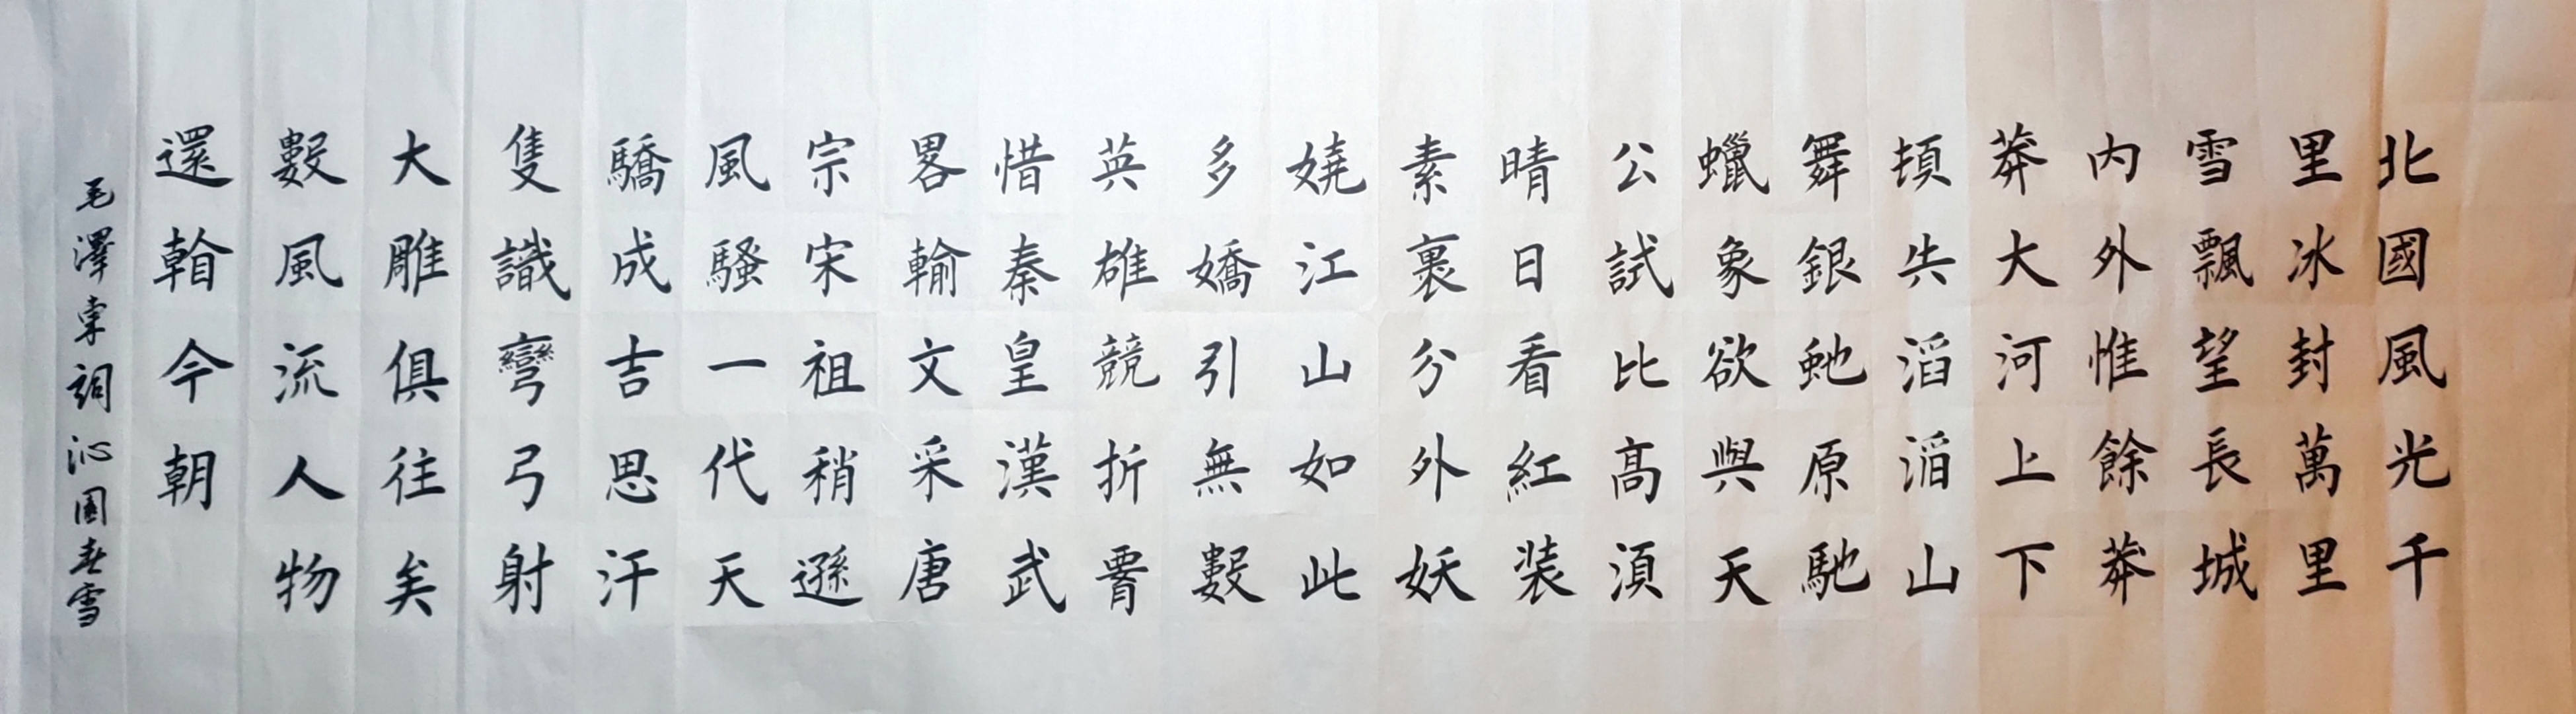 北國風光千
里冰封萬里
雪飄望長城
内外惟餘莽
莽大河上下
頓失滔滔山
舞銀虵原馳
蠟象欲與天
公試比高須
晴日看紅装
素裹分外妖
嬈江山如此
多嬌引無數
英雄競折
惜秦皇漢武
畧輸文采唐
宗宋祖稍遜
風騷一代天
驕成吉思汗
隻識彎弓射
大雕俱往矣
數風流人物
還今朝
毛澤東詞沁園春雪